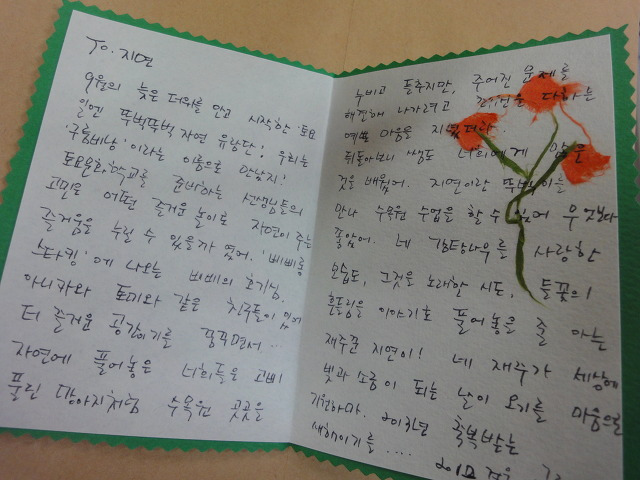 To. 지연
9월의 늦은 더위를 안고 시작한 '토요
일엔 뚜벅뚜벅 자연 유랑단! 우리는
'구름비남' 이라는 이름으로 만났지!
토요문화학교를 준비하는 선생님들의
고민은 어떤 즐거운 놀이로 자연이 주는
즐거움을 누릴 수 있을까 였어. '삐삐롱
스타킹' 에 나오는 삐삐의 호기심,
아니카와 토미와 같은 친구들이 있어
더 즐거운 공감이기를 꿈꾸면서...
자연에 풀어놓은 너희들은 고삐
풀린 망아지처럼 수목원 곳곳을
누비고 들추지만, 주어진 문제를
해결해 나가려고 최선을 다하는
예쁜 마음을 지녔더라.
뒤돌아보니 쌤도 너희에게 많은
것을 배웠어. 지연이란 뚜벅이를
만나 수목원 수업을 할 수 있어 무엇보다
좋았어. 네 감탕나무를 사랑한
모습도, 그것을 노래한 시도, 들꽃의
흔들림을 이야기로 풀어놓을 줄 아는
재주꾼 지연이! 네 재주가 세상에
빛과 소금이 되는 날이 오기를 마음으로
기원하마. 2013년 축복받는
새해이기를 ....